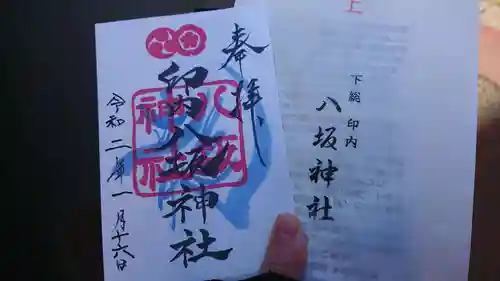 上
下総 印内
八坂神社
奉拝
八坂神社
印内八坂神社
令和二年一月十六日